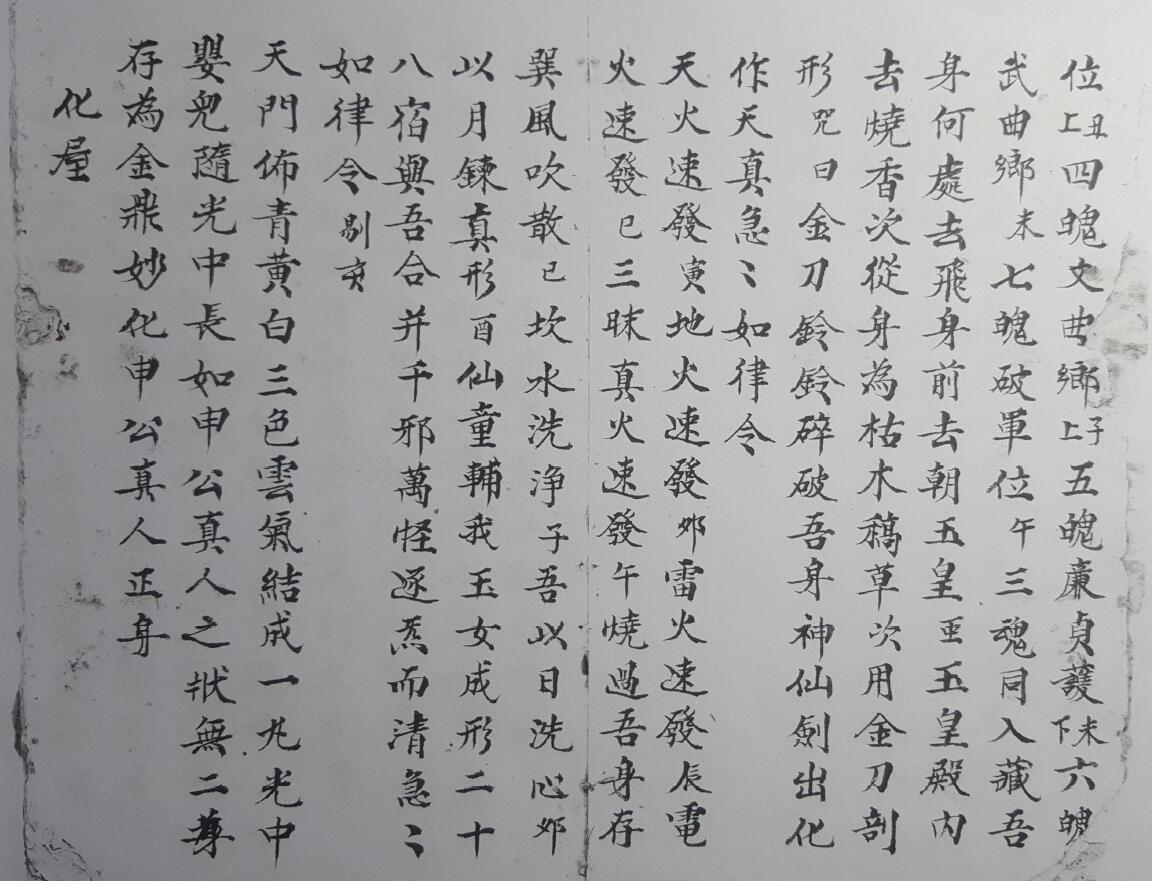 位上丑四魄文曲鄉上子五魄廉貞護下未六魄
武曲鄉未七魄破軍位午三魂同入藏吾
身何處去飛身前去朝玉皇亜玉皇殿內
去燒香次從身為枯木槁草次用金刀剖
形咒曰金刀鈴鈴碎破吾身神仙劍出化
作天真急〻如律令
天火速發寅地火速發卯雷火速發辰電
火速發巳三昧真火速發午燒過吾身存
巽風吹散已坎水洗淨子吾以日洗心卯
以月鍊真形酉仙童輔我玉女成形二十
八宿與吾合并千邪萬怪逐炁而清急〻
如律令剔亥
天門佈青黃白三色雲氣結成一九光中
嬰兒隨光中長如申公真人之狀無二尊
存為金鼎妙化申公真人正身
化屋